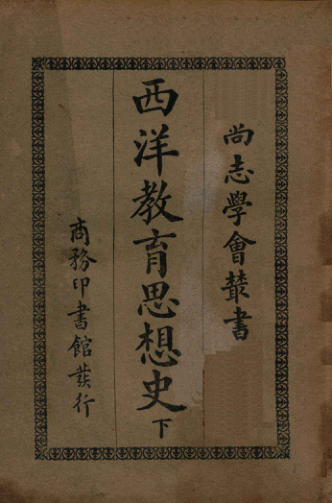 尚志學會叢書
西洋教育思想史下
商務印書館發行